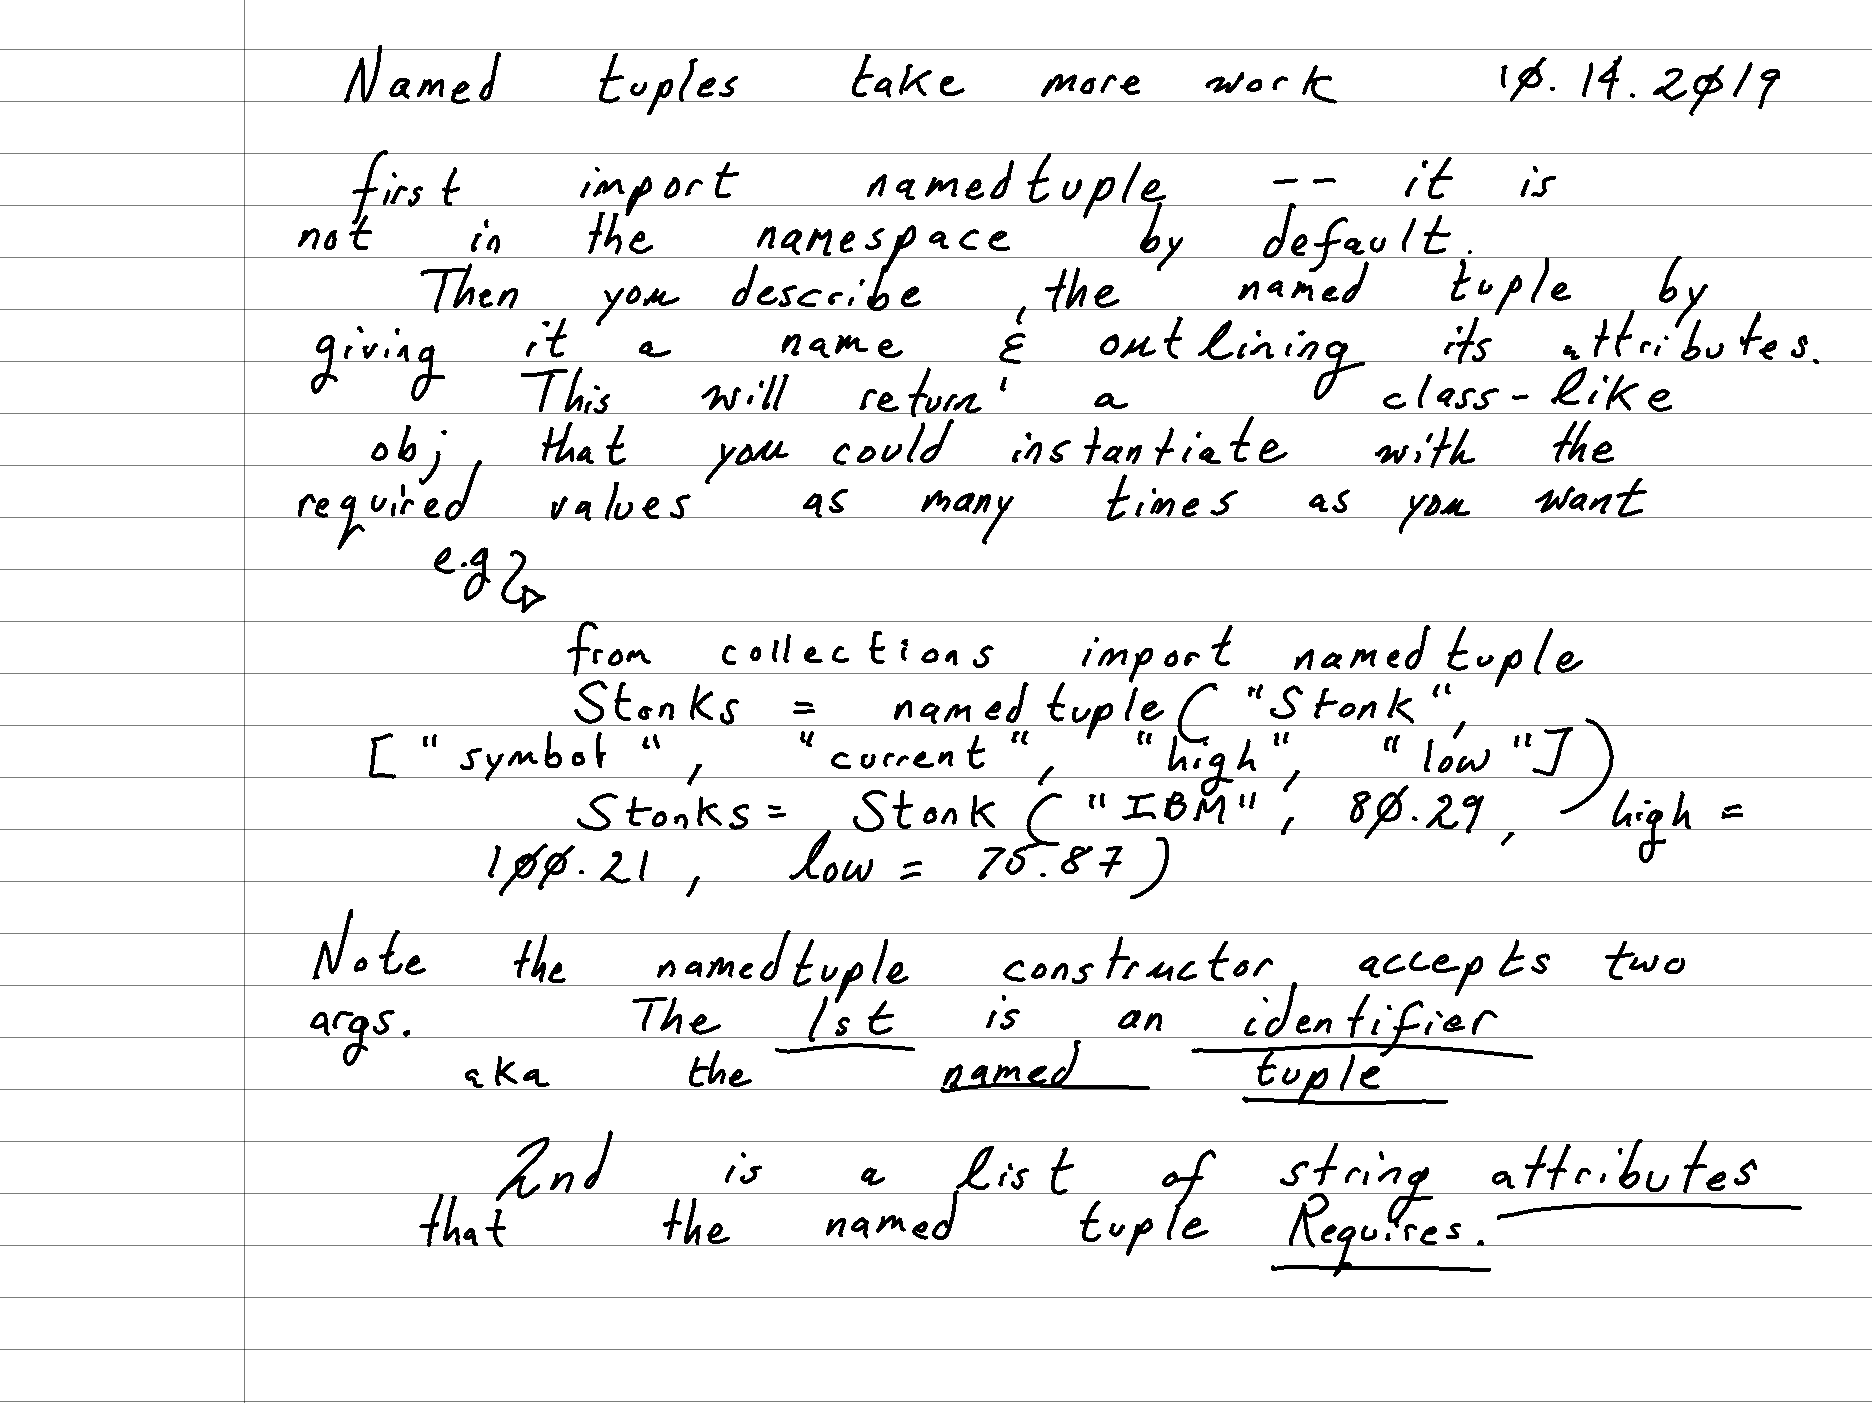 Named tuples take more work 10.14.2019
first import namedtuple -- it is
not in the namespace by default.
Then you describe the named tuple by
giving it a name & outlining its attributes.
This will return a class-like
obj that you could instantiate with the
required values as many times as you want
e.g
from collections import namedtuple
Stonks = namedtuple( "Stonk",
["symbol", "current", "high", "low"])
Stonks = Stonk ( "IBM", 80.29, high =
100.21, low = 75.87)
Note the namedtuple constructor accepts two
args. The 1st is an identifier
aka the named tuple
2nd is a list of string attributes
that the named tuple Requires.